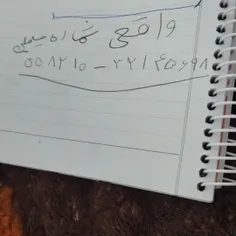 واقعی شماره سیملی
۵۵۸۲۱۵ – ۲۲۱۴۵۶۹۸